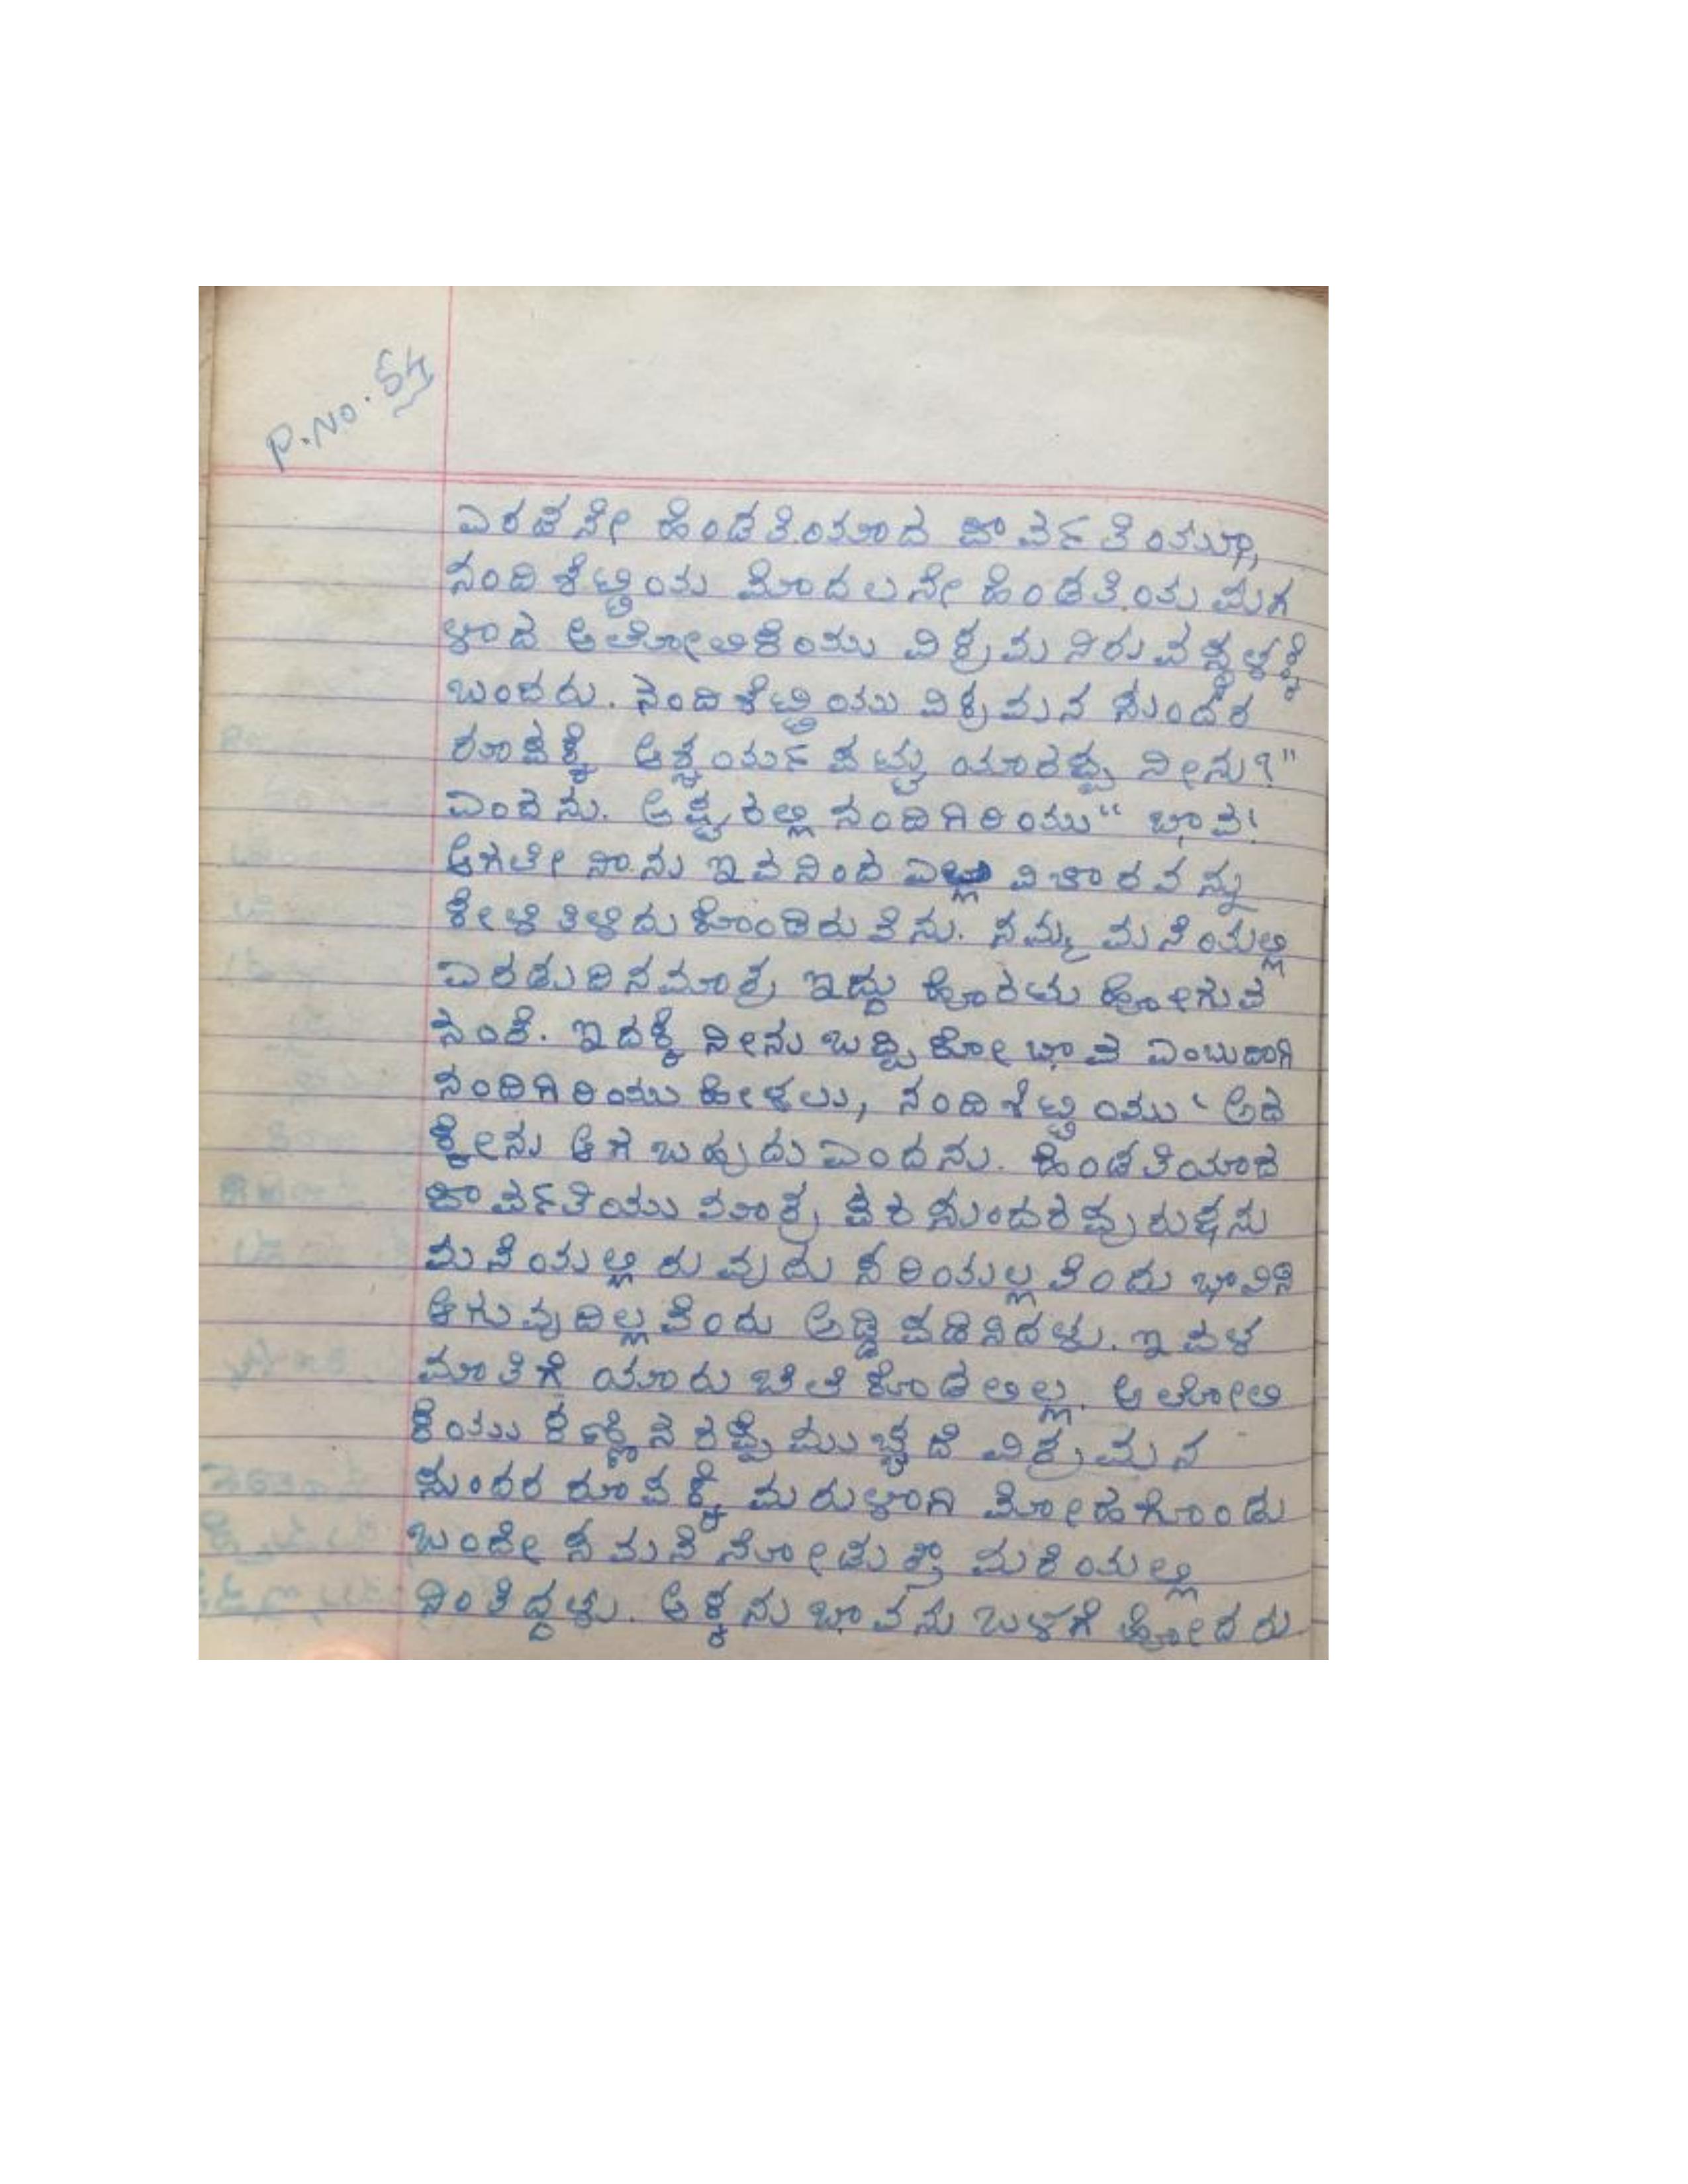 P.No. 54
ಎರಡನೇ ಹೆಂಡತಿಯಾದ ಪಾರ್ವತೆಯೂ,
ನಂದಿಶೆಟ್ಟಿಯ ಮೊದಲನೇ ಹೆಂಡತಿಯ ಮಗ
ಳಾದ ಅಲೋಲಿಕೆಯು ವಿಕ್ರಮ ನಿರುವ ಸ್ಥಳಕ್ಕೆ
ಬಂದರು. ನಂದಿಶೆಟ್ಟಿಯು ವಿಕ್ರಮನ ಸುಂದರ
ರೂಪಕ್ಕೆ ಆಶ್ಚರ್ಯ ಪಟ್ಟು ಯಾರಪ್ಪ ನೀನು?"
ಎಂದನು. ಅಷ್ಟರಲ್ಲಿ ನಂದಿಗಿರಿಯು "ಭಾವ!
ಆಗಲೇ ನಾನು ಇವನಿಂದ ಎಲ್ಲಾ ವಿಚಾರವನ್ನು
ಕೇಳಿ ತಿಳಿದು ಕೊಂಡಿರುವೆನು. ನಮ್ಮ ಮನೆಯಲ್ಲಿ
ಎರಡು ದಿನ ಮಾತ್ರ ಇದ್ದು ಹೊರಟು ಹೋಗುವ
ನಂತೆ. ಇದಕ್ಕೆ ನೀನು ಒಪ್ಪಿಕೋ ಭಾವ ಎಂಬುದಾಗಿ
ನಂದಿಗಿರಿಯು ಹೇಳಲು, ನಂದಿಶೆಟ್ಟಿಯು 'ಅದ
ಕ್ಕೇನು ಆಗ ಬಹುದು ಎಂದನು. ಹೆಂಡತಿಯಾದ
ಪಾರ್ವತಿಯು ಮಾತ್ರ ಪರ ಸುಂದರ ಪುರುಷನು
ಮನೆಯಲ್ಲಿರುವುದು ಸರಿಯಲ್ಲವೆಂದು ಭಾವಿಸಿ
ಆಗುವುದಿಲ್ಲವೆಂದು ಅಡ್ಡಿ ಪಡಿಸಿದಳು. ಇವಳ
ಮಾತಿಗೆ ಯಾರು ಬೆಲೆ ಕೊಡಲಿಲ್ಲ. ಅಲೋಲಿ
ಕೆಯು ಕಣ್ಣಿನ ರಪ್ಪೆ ಮುಚ್ಚದೆ ವಿಕ್ರಮನ
ಸುಂದರ ರೂಪಕ್ಕೆ ಮರುಳಾಗಿ ಮೋಹಗೊಂಡು
ಬಂದೇ ಸಮನೆ ನೋಡುತ್ತಾ ಮರೆಯಲ್ಲಿ
ನಿಂತಿದ್ದಳು. ಅಕ್ಕನು ಭಾವನು ಒಳಗೆ ಹೋದರು.